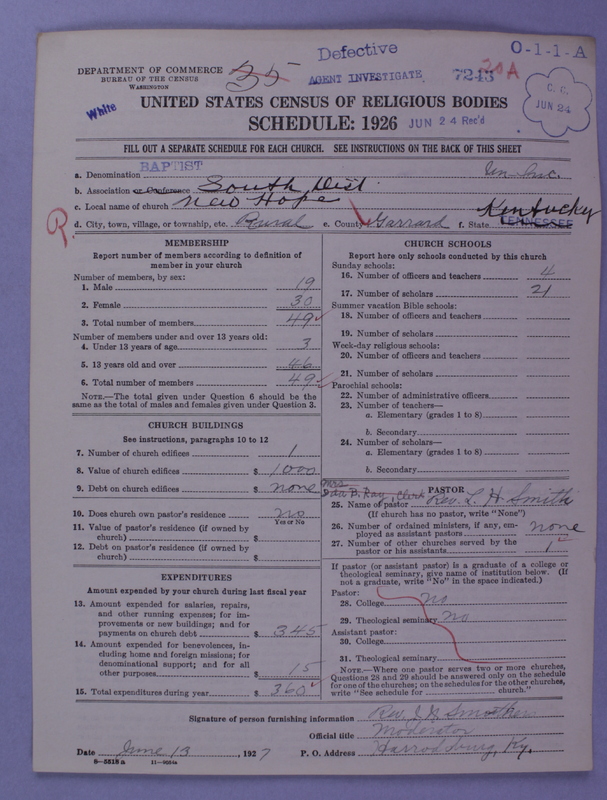 Defective
O-1-1-A
35
AGENT INVESTIGATE
7243
20A
C. C.
JUN 24
DEPARTMENT OF COMMERCE
BUREAU OF THE CENSUS
WASHINGTON
White
UNITED STATES CENSUS OF RELIGIOUS BODIES
SCHEDULE: 1926
JUN 24 Rec'd
FILL OUT A SEPARATE SCHEDULE FOR EACH CHURCH. SEE INSTRUCTIONS ON THE BACK OF THIS SHEET
a. Denomination BAPTIST
b. Association or Conference South Dist.
c. Local name of church New Hope
R
d. City, town, village, or township, etc. Rural e. County Garrard f. State Kentucky TENNESSEE
MEMBERSHIP
Report number of members according to definition of
member in your church
Number of members, by sex:
1. Male 19
2. Female 30
3. Total number of members 49
Number of members under and over 13 years old:
4. Under 13 years of age 3
5. 13 years old and over 46
6. Total number of members 49
NOTE.—The total given under Question 6 should be the
same as the total of males and females given under Question 3.
CHURCH BUILDINGS
See instructions, paragraphs 10 to 12
7. Number of church edifices 1
8. Value of church edifices $ 1000
9. Debt on church edifices $ none
10. Does church own pastor's residence no
Yes or No
11. Value of pastor's residence (if owned by
church) $
12. Debt on pastor's residence (if owned by
church) $
EXPENDITURES
Amount expended by your church during last fiscal year
13. Amount expended for salaries, repairs,
and other running expenses; for im-
provements or new buildings; and for
payments on church debt $ 345
14. Amount expended for benevolences, in-
cluding home and foreign missions; for
denominational support; and for all
other purposes $ 15
15. Total expenditures during year $ 360
CHURCH SCHOOLS
Report here only schools conducted by this church
Sunday schools:
16. Number of officers and teachers 4
17. Number of scholars 21
Summer vacation Bible schools:
18. Number of officers and teachers
19. Number of scholars
Week-day religious schools:
20. Number of officers and teachers
21. Number of scholars
Parochial schools:
22. Number of administrative officers
23. Number of teachers—
a. Elementary (grades 1 to 8)
b. Secondary
24. Number of scholars—
a. Elementary (grades 1 to 8)
b. Secondary
Mrs
Ray, Clerk
PASTOR
25. Name of pastor Rev. L. H. Smith
(If church has no pastor, write "None")
26. Number of ordained ministers, if any, em-
ployed as assistant pastors none
27. Number of other churches served by the
pastor or his assistants 1
If pastor (or assistant pastor) is a graduate of a college or
theological seminary, give name of institution below. (If
not a graduate, write "No" in the space indicated.)
Pastor:
28. College no
29. Theological seminary no
Assistant pastor:
30. College
31. Theological seminary
NOTE.—Where one pastor serves two or more churches,
Questions 28 and 29 should be answered only on the schedule
for one of the churches; on the schedules for the other churches,
write "See schedule for church."
Signature of person furnishing information Rev.
Official title Moderator
Date June 13, 1927 P. O. Address Harrodsburg, Ky.
8—5518a 11—9034a